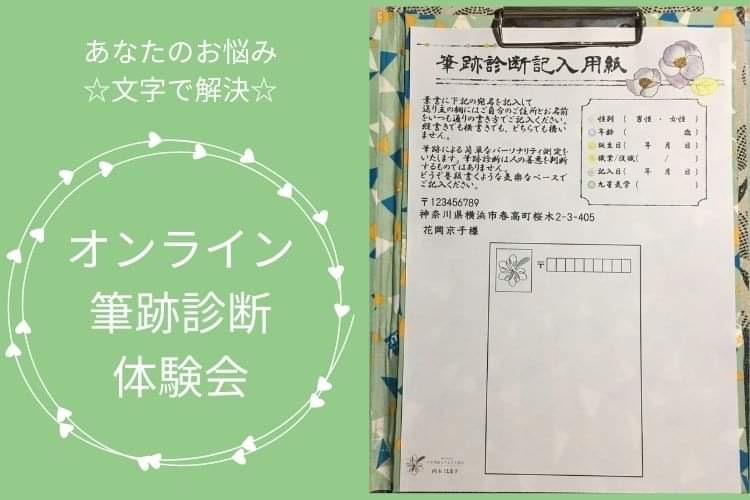 あなたのお悩み
☆文字で解決☆
オンライン
筆跡診断
体験会
筆跡診断記入用紙
葉書に下記の宛名を記入して
送り主の欄にはご自分のご住所とお名前
をいつも通りの書き方でご記入ください。
縦書きでも横書きでも、どちらでも構い
ません。
筆跡による簡単なパーソナリティ測定を
いたします。筆跡診断は人の善悪を判断
するものではありません。
どうぞ普段書くような気楽なペースで
ご記入ください。
性別 ( 男性 ・ 女性 )
年齢 ( 歳)
誕生日( 年 月 日)
職業/役職( / )
記入日( 年 月 日)
九星気学 ( )
〒123456789
神奈川県横浜市春高町桜木2-3-405
花岡京子様
〒